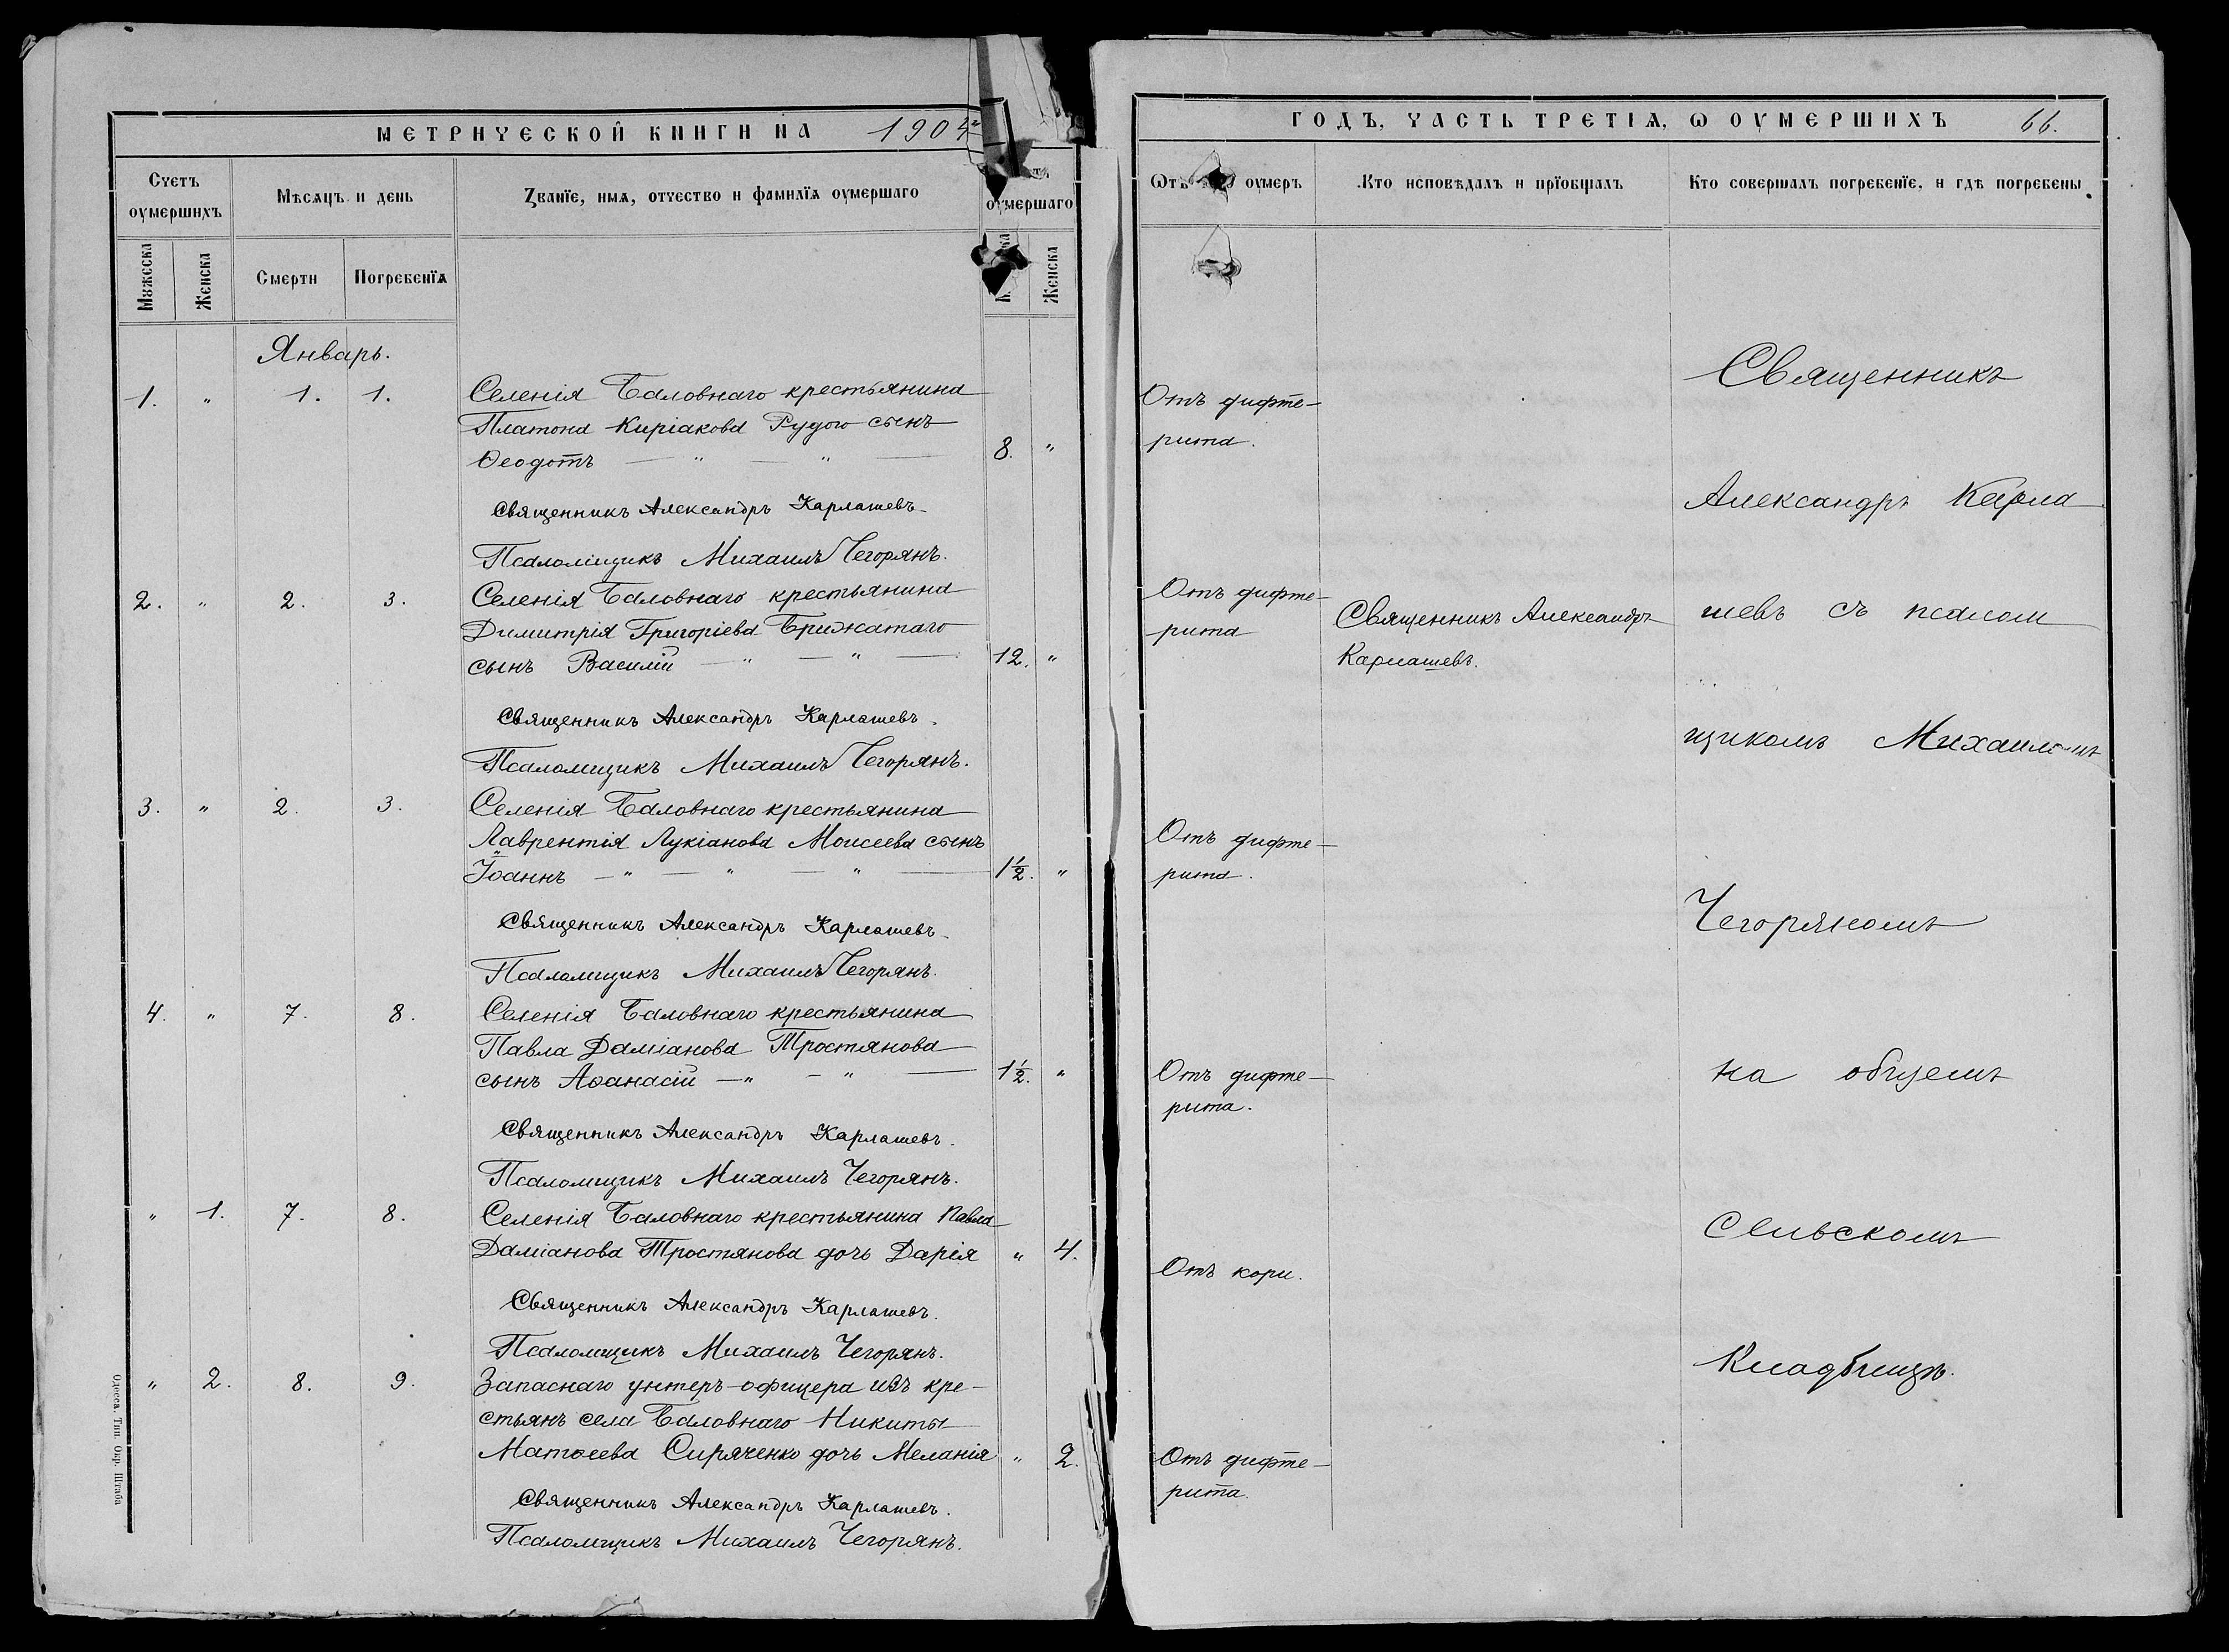 МЕТРИЧЕСКОЙ КНИГИ НА 1904
Счетъ оумершихъ
Мѣсяцъ и день
Званїе, имя, отчество и фамилїя оумершаго
оумершаго
Мꙋжеска
Женска
Смерти
Погребенїя
Женска
Январь.
1. " 1. 1. Селенія Баловнаго крестьянина
Платона Киріакова Рудого сынъ
Ѳеодотъ — " — " — 8. "
Священникъ Александръ Карлашевъ.
Псаломщикъ Михаилъ Чегорянъ.
2. " 2. 3. Селенія Баловнаго крестьянина
Димитрія Григоріева Брижатаго
сынъ Василій — " — " — 12. "
Священникъ Александръ Карлашевъ.
Псаломщикъ Михаилъ Чегорянъ.
3. " 2. 3. Селенія Баловнаго крестьянина
Лаврентія Лукіанова Моисеева сынъ
Іоаннъ — " — " — " — 1½. "
Священникъ Александръ Карлашевъ.
Псаломщикъ Михаилъ Чегорянъ.
4. " 7. 8. Селенія Баловнаго крестьянина
Павла Даміанова Тростянова
сынъ Аѳанасій — " — " — 1½. "
Священникъ Александръ Карлашевъ.
Псаломщикъ Михаилъ Чегорянъ.
" 1. 7. 8. Селенія Баловнаго крестьянина Павла
Даміанова Тростянова дочь Дарія " 4.
Священникъ Александръ Карлашевъ.
Псаломщикъ Михаилъ Чегорянъ.
" 2. 8. 9. Запаснаго унтеръ-офицера изъ кре-
стьянъ села Баловнаго Никиты
Матѳеева Сиряченко дочь Меланія " 2.
Священникъ Александръ Карлашевъ.
Псаломщикъ Михаилъ Чегорянъ.
Одесса. Тип. Окр. Штаба
ГОДЪ, ЧАСТЬ ТРЕТІЯ, Ѡ ОУМЕРШИХЪ 66.
Ѿтъ оумеръ
Кто исповѣдалъ и прїобщалъ
Кто совершалъ погребенїе, и гдѣ погребены
Отъ дифте-
рита.
Отъ дифте-
рита
Отъ дифте-
рита.
Отъ дифте-
рита.
Отъ кори.
Отъ дифте-
рита.
Священникъ Александръ
Карлашевъ.
Священникъ
Александръ Карла
шевъ съ псалом
щикомъ Михаиломъ
Чегоряномъ
на общемъ
сельскомъ
кладбищѣ.